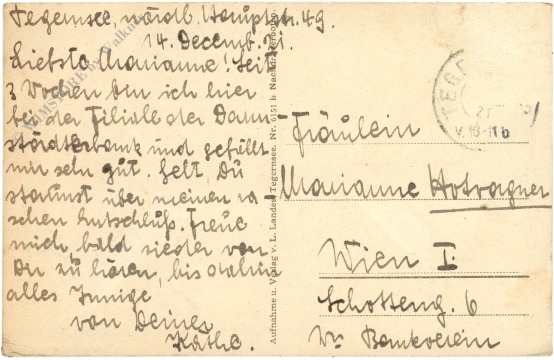 Tegernsee, nördl. Hauptstr. 49.
14. Decemb. 21.
Liebste Marianne! Seit
3 Wochen bin ich hier
bei der Filiale der Darm-
städterbank und gefällt
mir sehr gut. Gelt, Du
staunst über meinen ra-
schen Entschluß. Freue
mich, bald wieder von
Dir zu hören, bis dahin
alles Innige
von Deiner
Käthe.
Aufnahme u. Verlag v. L. Landes Tegernsee. Nr. 6151 b Nachdr. verboten.
TEG
21
V. 10-11 b
Fräulein
Marianne Hotvagner
Wien I.
Schotteng. 6
Wr. Bankverein